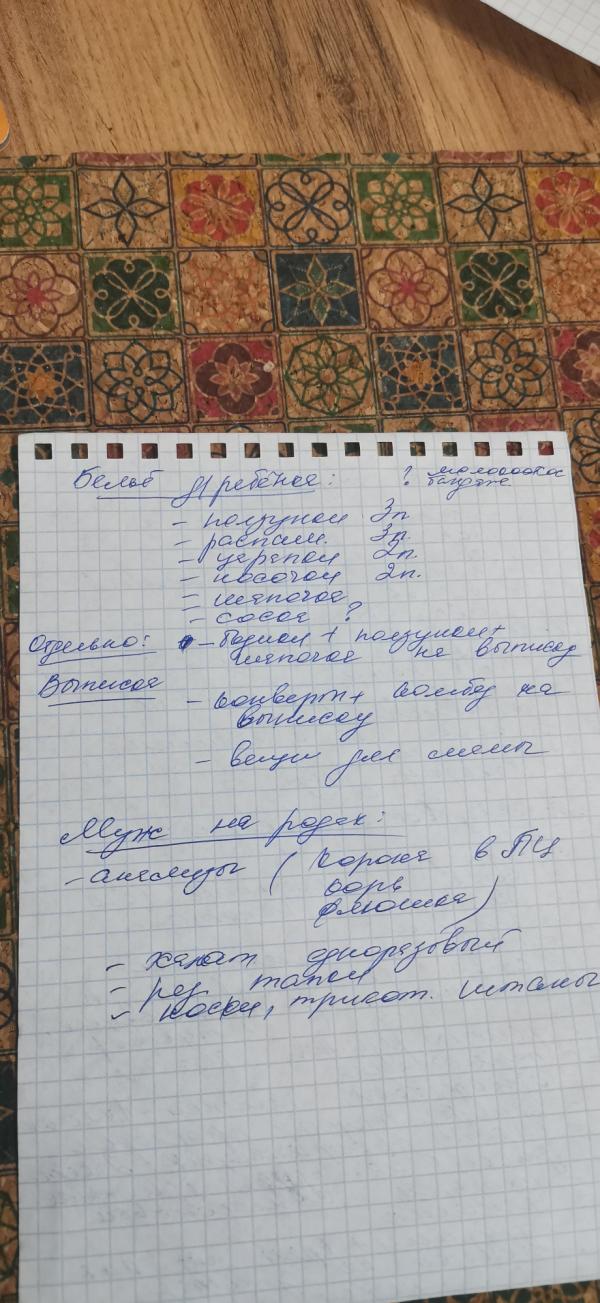 Бельё д/ ребёнка: ? молокоотсос
бандаж
- ползунки 3п
- распаш. 3п.
- царапки 2п.
- носочки 2п.
- шапочка
- соска ?
Отдельно: - бодики + ползунки +
шапочка на выписку
Выписка
- конверт + комбез на
выписку
- вещи для мамы
Муж на родах:
- анализы (корона в ПЦ
корь
флюшка)
- халат одноразовый
- рез. тапки
- носки, трикот. штаны